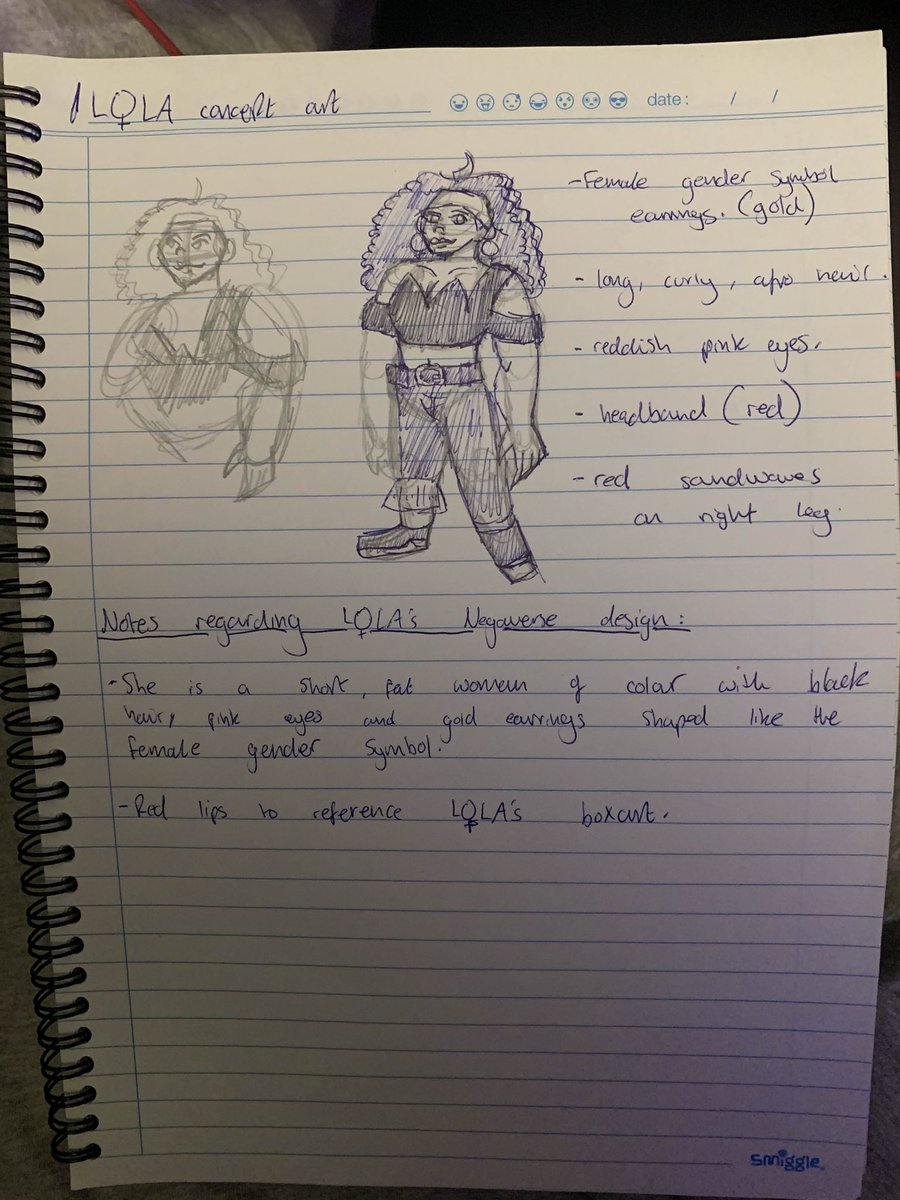 L♀LA concept art
date: / /
- Female gender symbol
earrings. (gold)
- long, curly, afro hair.
- reddish pink eyes.
- headband (red)
- red sandwaves
on right leg.
Notes regarding L♀LA's Negaverse design:
- She is a short, fat women of color with black
hair, pink eyes and gold earrings shaped like the
female gender symbol.
- Red lips to reference L♀LA's boxart.
smiggle